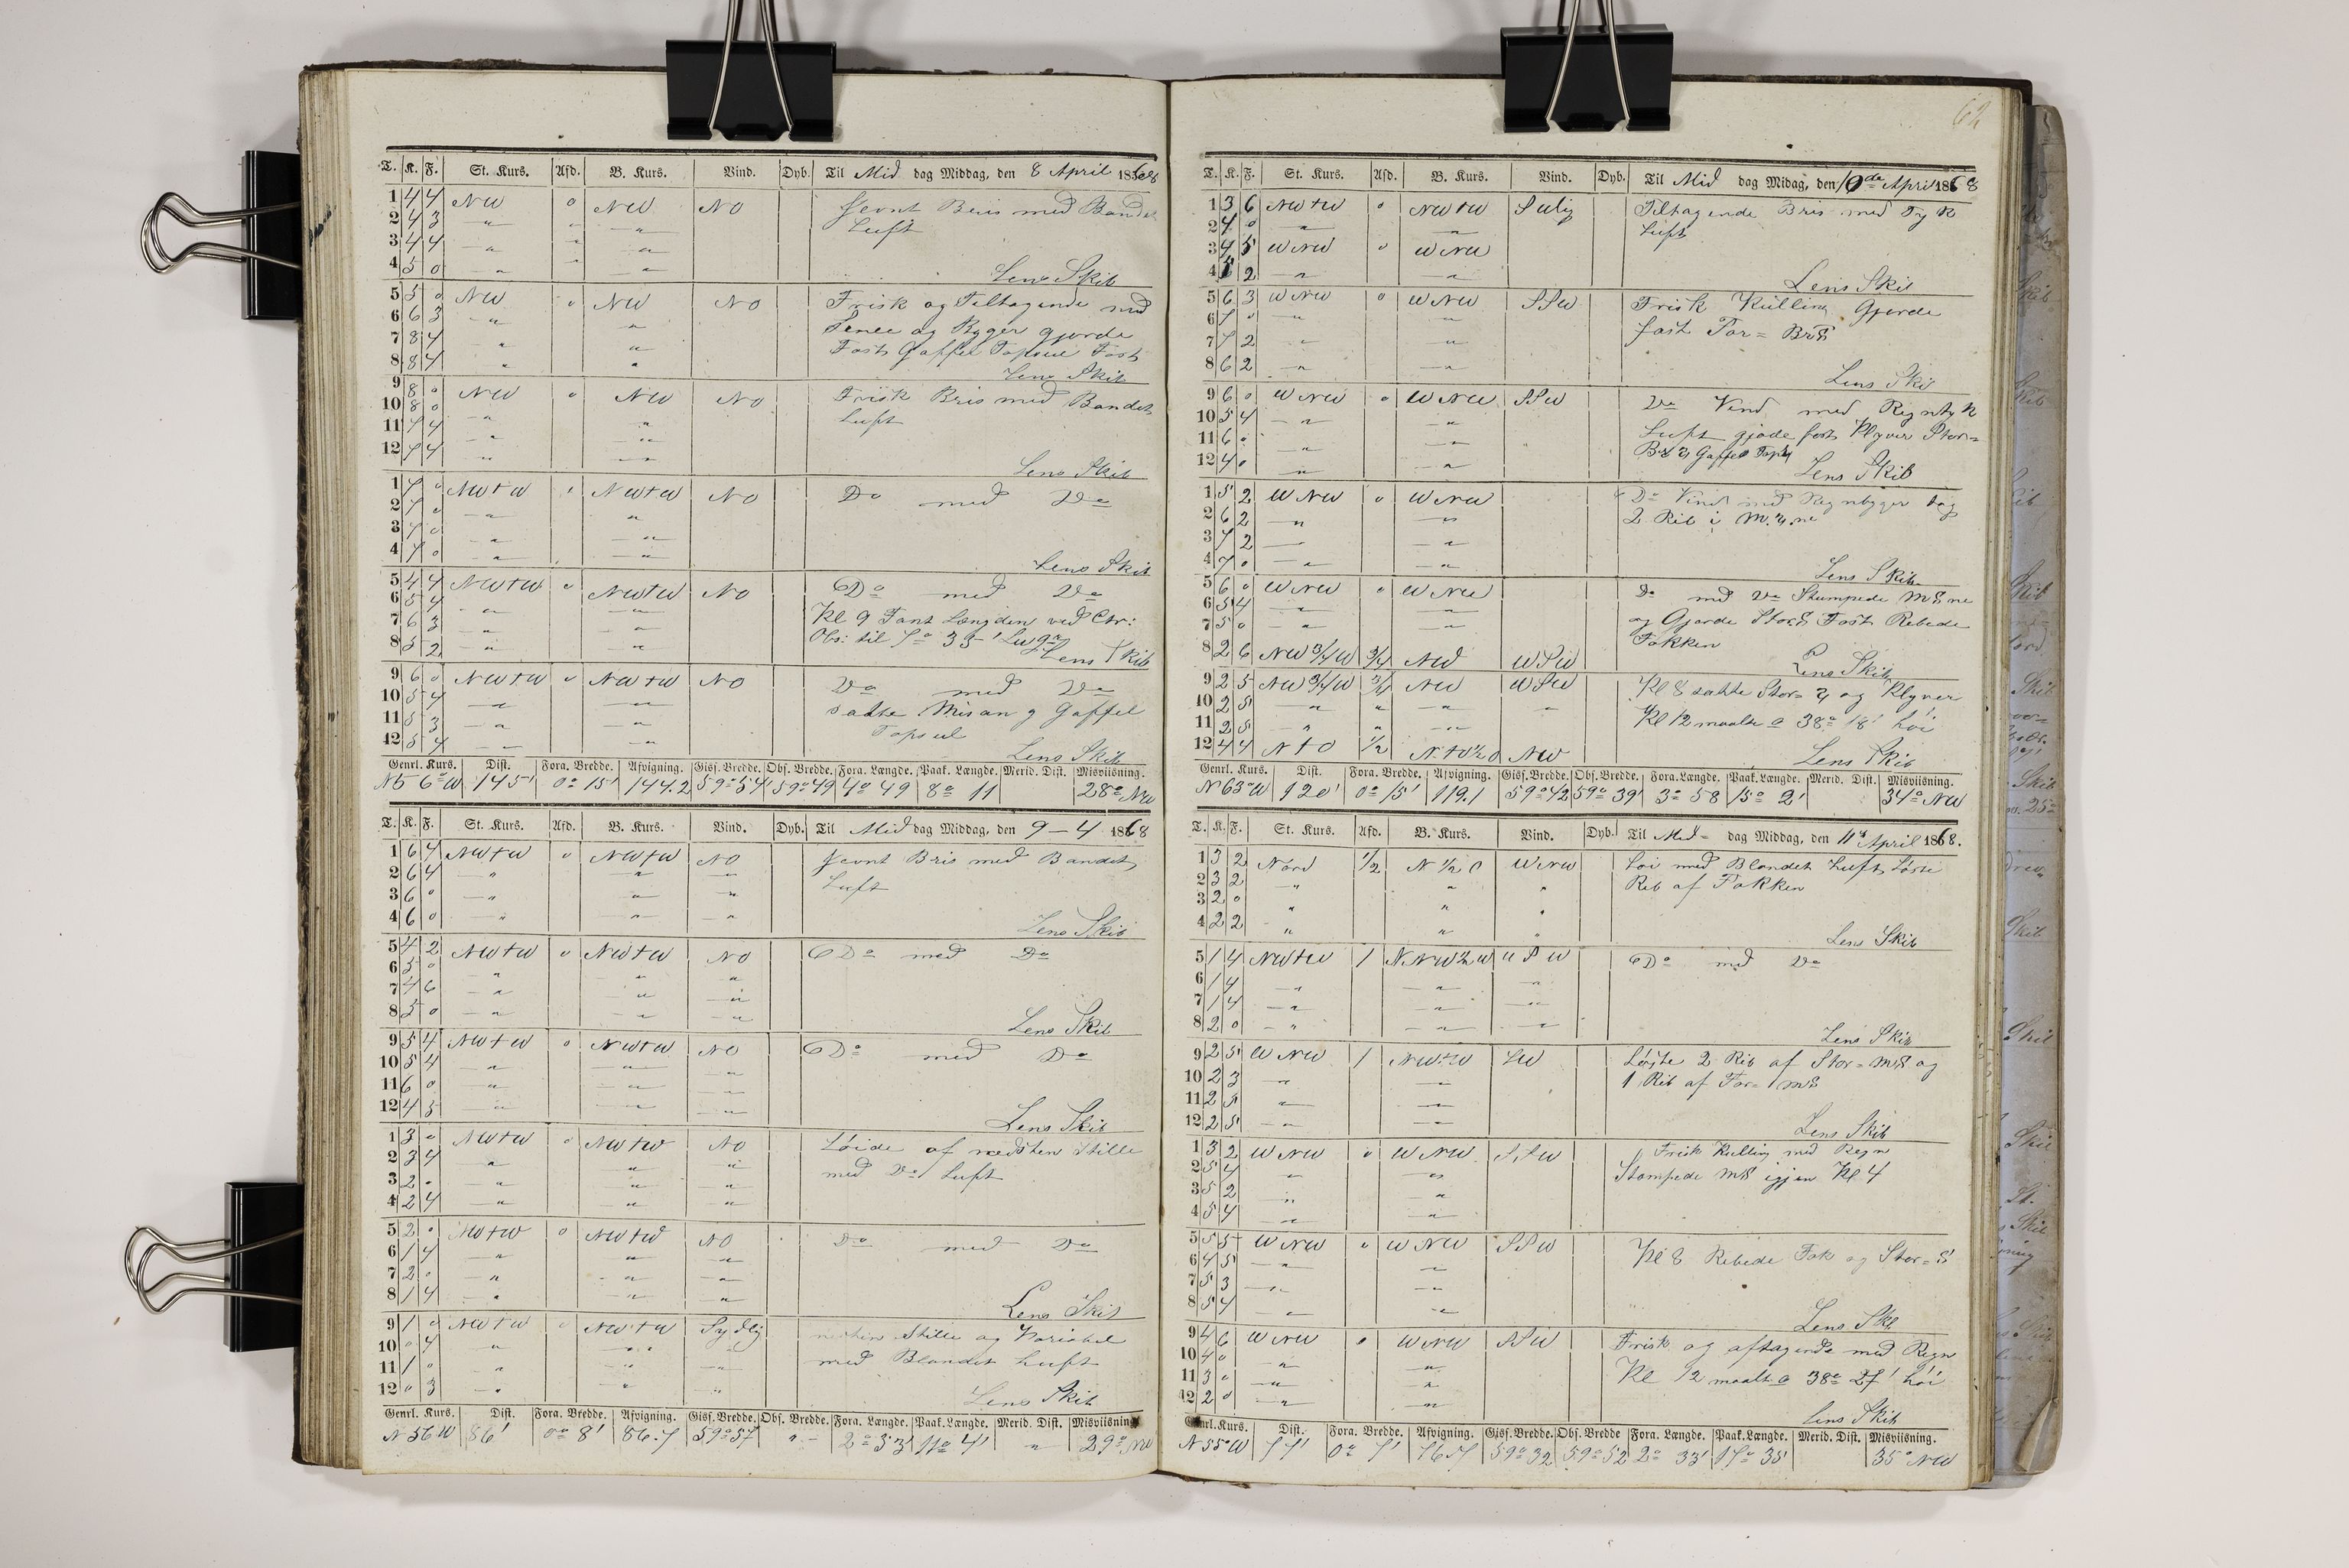 T. K. F. St. Kurs. Afd. B. Kurs. Vind. Dyb. Til Mid dag Middag, den 8 April 1868
1 4 4 NW 0 NW NO Jevnt Bris med Bandet
2 4 3 " " " Luft
3 4 4 " " "
4 5 0 " " Lens Skib
5 5 0 NW 0 NW NO Frisk og Tiltagende med
6 6 3 " " og Byger gjorde
7 8 4 " " Fast Gaffel Topseil
8 8 4 " " Lens Skib
9 8 0 NW 0 NW NO Frisk Bris med Bandet
10 8 0 " " Luft
11 7 4 " "
12 7 4 " " Lens Skib
1 7 0 NW+W 0 NW+W NO Do med Do
2 7 0 " "
3 7 0 " "
4 7 0 " " Lens Skib
5 4 4 NW+W 0 NW+W NO Do med Do
6 5 4 " " Kl 9 Fant Længden ved Ctr:
7 6 3 " " Obs: til 7° 35'
8 5 2 " " Lens Skib
9 6 0 NW+W 0 NW+W NO Do med Do
10 5 4 " " satte Misan og Gaffel
11 5 3 " " Topseil
12 5 4 " " Lens Skib
Genrl. Kurs. Dist. Fora. Bredde. Afvigning. Gisf. Bredde. Obs. Bredde. Fora. Længde. Paak. Længde. Merid. Dist. Misviisning.
145' 0° 15' 144.2 59° 54' 59° 49 4° 49 8° 11 28° NW
T. K. F. St. Kurs. Afd. B. Kurs. Vind. Dyb. Til Mid dag Middag, den 9-4 1868
1 6 4 NW+W 0 NW+W NO Jevnt Bris med Bandet
2 6 4 " " " Luft
3 6 0 " " "
4 6 0 " " " Lens Skib
5 4 2 NW+W 0 NW+W NO Do med Do
6 5 0 " " "
7 4 6 " " "
8 5 0 " " " Lens Skib
9 5 4 NW+W 0 NW+W NO Do med Do
10 5 4 " " "
11 6 0 " " "
12 4 5 " " " Lens Skib
1 3 0 NW+W 0 NW+W NO Løide af næsten Stille
2 3 4 " " " med Do Luft
3 2 0 " " "
4 2 4 " " "
5 2 0 NW+W 0 NW+W NO Do med Do
6 1 4 " " "
7 2 0 " " "
8 1 4 " " " Lens Skib
9 1 0 NW+W 0 NW+W Sydlig Stille og Variabel
10 0 4 " " " med Blandet Luft
11 1 0 " " "
12 0 3 " " " Lens Skib
Genrl. Kurs. Dist. Fora. Bredde. Afvigning. Gisf. Bredde. Obs. Bredde. Fora. Længde. Paak. Længde. Merid. Dist. Misviisning.
N 56 W 86' 0° 8' 86.7 59° 57 " 2° 53' 11° 4' " 29° NW
62
T. K. F. St. Kurs. Afd. B. Kurs. Vind. Dyb. Til Mid dag Midag, den 10de April 1868
1 3 6 NW+W 0 NW+W Tiltagende Bris med Tyk
2 4 0 " " Luft
3 4 5 WNW 0 WNW
4 5 2 " " Lens Skib
5 6 3 WNW 0 WNW SSW Frisk Kulling Gjorde
6 7 0 " " fast For=
7 7 2 " "
8 6 2 " " Lens Skib
9 6 0 WNW 0 WNW SSW Do Vind med Regntyk
10 5 4 " " Luft gjode fast Klyver Stor=
11 6 0 " " Gaffel
12 4 0 " " Lens Skib
1 5 2 WNW 0 WNW Do Vind med Regnbyger tog
2 6 2 " " 2 Rib i
3 7 2 " "
4 7 0 " " Lens Skib
5 6 0 WNW 0 WNW Do med Do Stumpede
6 5 4 " " og Gjorde Fast Rebede
7 5 0 " " Fokken
8 2 6 NW 3/4 W 3/4 NW WSW Lens Skib
9 2 5 NW 3/4 W 3/4 NW WSW Kl 8 satte Stor= og Klyver
10 2 5 " " " " Kl 12 maalte 38° 18' høi
11 2 5 " " "
12 4 4 N+O 1/2 N+O½O NW Lens Skib
Genrl. Kurs. Dist. Fora. Bredde. Afvigning. Gisf. Bredde. Obs. Bredde. Fora. Længde. Paak. Længde. Merid. Dist. Misviisning.
N 63° W 120' 0° 15' 119.1 59° 42 59° 39' 3° 58 15° 2' 34° NW
T. K. F. St. Kurs. Afd. B. Kurs. Vind. Dyb. Til Mid dag Middag, den 11 April 1868.
1 3 2 Nord 1/2 N ½ O WNW Løi med Blandet Luft Løste
2 3 2 " " " Rib af Fokken
3 2 0 " " "
4 2 2 " " " Lens Skib
5 1 4 NW+W 1 WSW Do med Do
6 1 4 " " "
7 1 4 " " "
8 2 0 " " " Lens Skib
9 2 5 WNW 1 NW+W SW Løste 2 Rib af Stor= og
10 2 3 " " 1 Rib af For=
11 2 5 " "
12 2 5 " " Lens Skib
1 3 2 WNW 0 WNW SSW Frisk Kulling med Regn
2 5 4 " " Stompede igjen Kl 4
3 5 2 " "
4 5 4 " "
5 5 5 WNW 0 WNW SSW Kl 8 Rebede Fok og Stor=
6 4 5 " "
7 5 3 " "
8 5 4 " " Lens Skb
9 4 6 WNW 0 WNW SSW Frisk og aftagende med Regn
10 4 0 " " Kl 12 maalte 38° 27' høi
11 3 0 " "
12 2 0 " " Lens Skib
Genrl. Kurs. Dist. Fora. Bredde. Afvigning. Gisf. Bredde. Obs. Bredde Fora. Længde. Paak. Længde. Merid. Dist. Misviisning.
N 55° W 0° 7' 59° 32 59° 52 2° 33' 17° 35' 35° NW